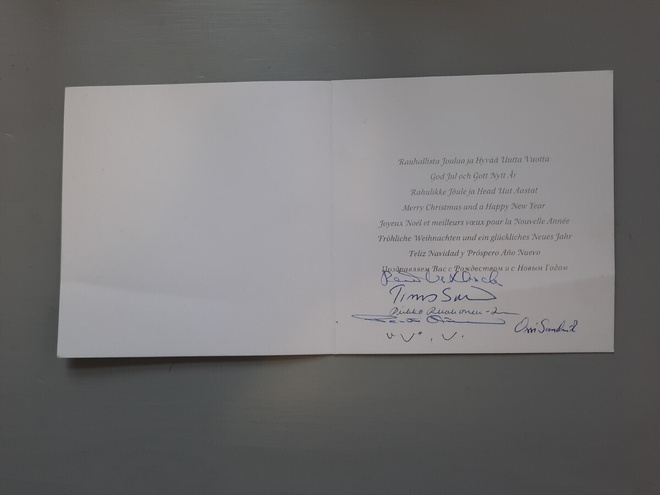 Rauhallista Joulua ja Hyvää Uutta Vuotta
God Jul och Gott Nytt År
Rahulikke Jõule ja Head Uut Aastat
Merry Christmas and a Happy New Year
Joyeux Noël et meilleurs vœux pour la Nouvelle Année
Fröhliche Weihnachten und ein glückliches Neues Jahr
Feliz Navidad y Próspero Año Nuevo
Поздравляем Вас с Рождеством и с Новым Годом
Timo